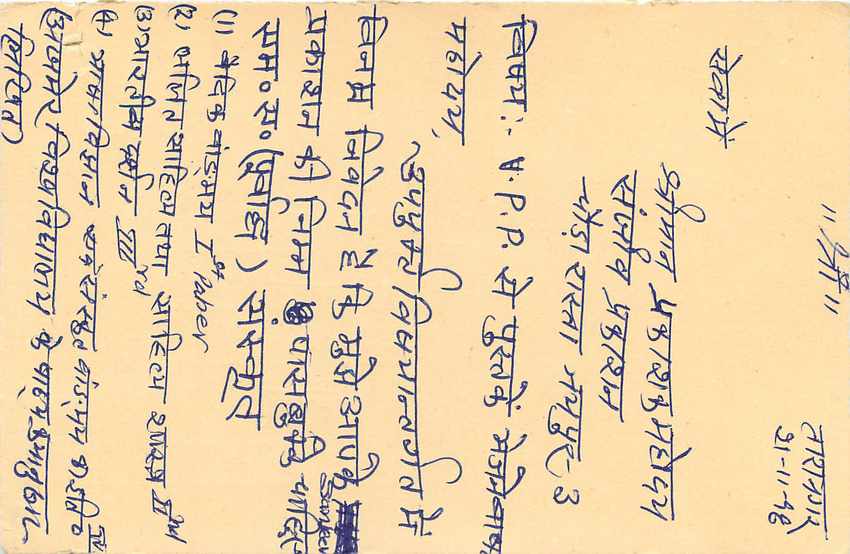 ॥ श्री ॥
21-11-98
सेवामें
श्रीमान प्रकाशक महोदय
संजीव प्रकाशन
चौड़ा रास्ता जयपुर-3
विषय:- V.P.P. से पुस्तकें भेजने बाबत्
महोदय,
उपर्युक्त विषयान्तर्गत में
विनम्र निवेदन है कि मुझे आपके
Sanjeev
प्रकाशन की निम्न पासबुकें चाहिए
एम० ए० (पूर्वार्द्ध) संस्कृत
(1) वैदिक वांङमय I st Paper
(2) ललित साहित्य तथा साहित्य II nd
(3) भारतीय दर्शन III rd
(4) भाषा विज्ञान एवं संस्कृत वांङ्मय का IV
(अजमेर विश्वविद्यालय के पाठ्यक्रमानुसार